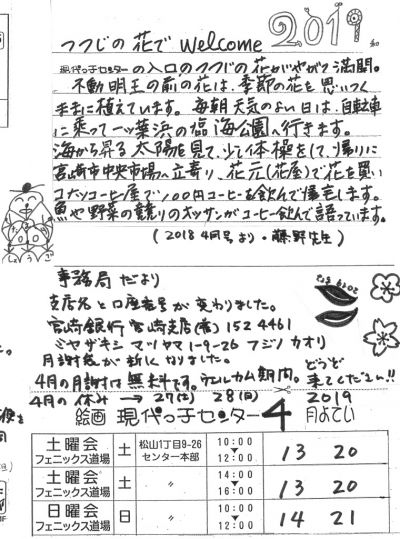 つつじの花で Welcome 2019
現代っ子センターの入口のつつじの花がやがて満開。
不動明王の前の花は、季節の花を思いつく
ままに植えています。毎朝天気のよい日は、自転車
に乗って一ッ葉浜の臨海公園へ行きます。
海から昇る太陽を見て、少し体操をして、帰りに
宮崎市中央市場へ立寄り、花元(花屋)で花を買い
コナツコーヒー屋で100円コーヒーを飲んで帰宅します。
魚や野菜の競りのオッサンがコーヒー飲んで語っています。
(2018 4月号より・藤野先生)
事務局だより
支店名と口座番号が変わりました。
宮崎銀行 宮崎支店(普) 152 4461
ミヤザキシ マツヤマ 1-9-26 フジノ カオリ
月謝袋が新しくなりました。
4月の月謝は無料です。ウェルカム期間。どうぞ
来てください!!
4月の休み → 27(土) 28(日) 2019
絵画 現代っ子センター 4 月よてい
土曜会 フェニックス道場 土 松山1丁目9-26 センター本部 10:00 ▼ 12:00 13 20
土曜会 フェニックス道場 土 〃 14:00 ▼ 16:00 13 20
日曜会 フェニックス道場 日 〃 10:00 ▼ 12:00 14 21